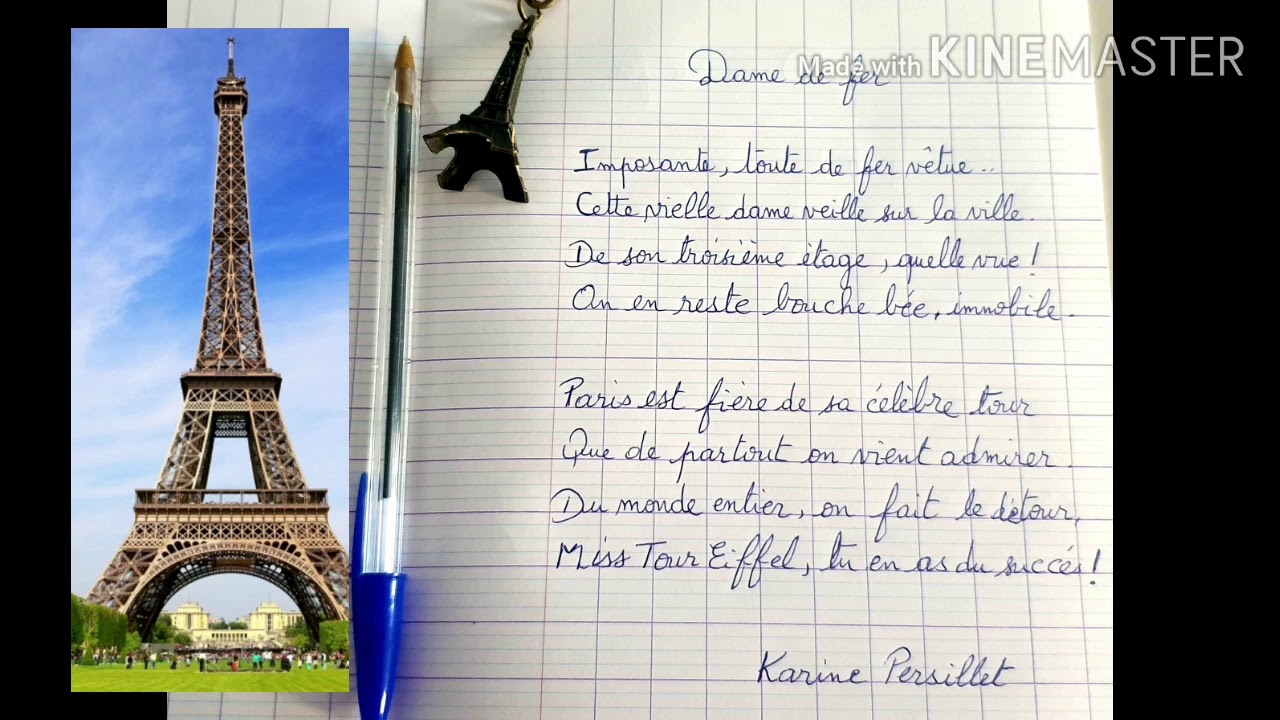 Made with KINEMASTER
Dame de fer
Imposante, toute de fer vêtue..
Cette vielle dame veille sur la ville.
De son troisième étage, quelle vue !
On en reste bouche bée, immobile.
Paris est fière de sa célèbre tour
Que de partout on vient admirer.
Du monde entier, on fait le détour,
Miss Tour Eiffel, tu en as du succés !
Karine Persillet